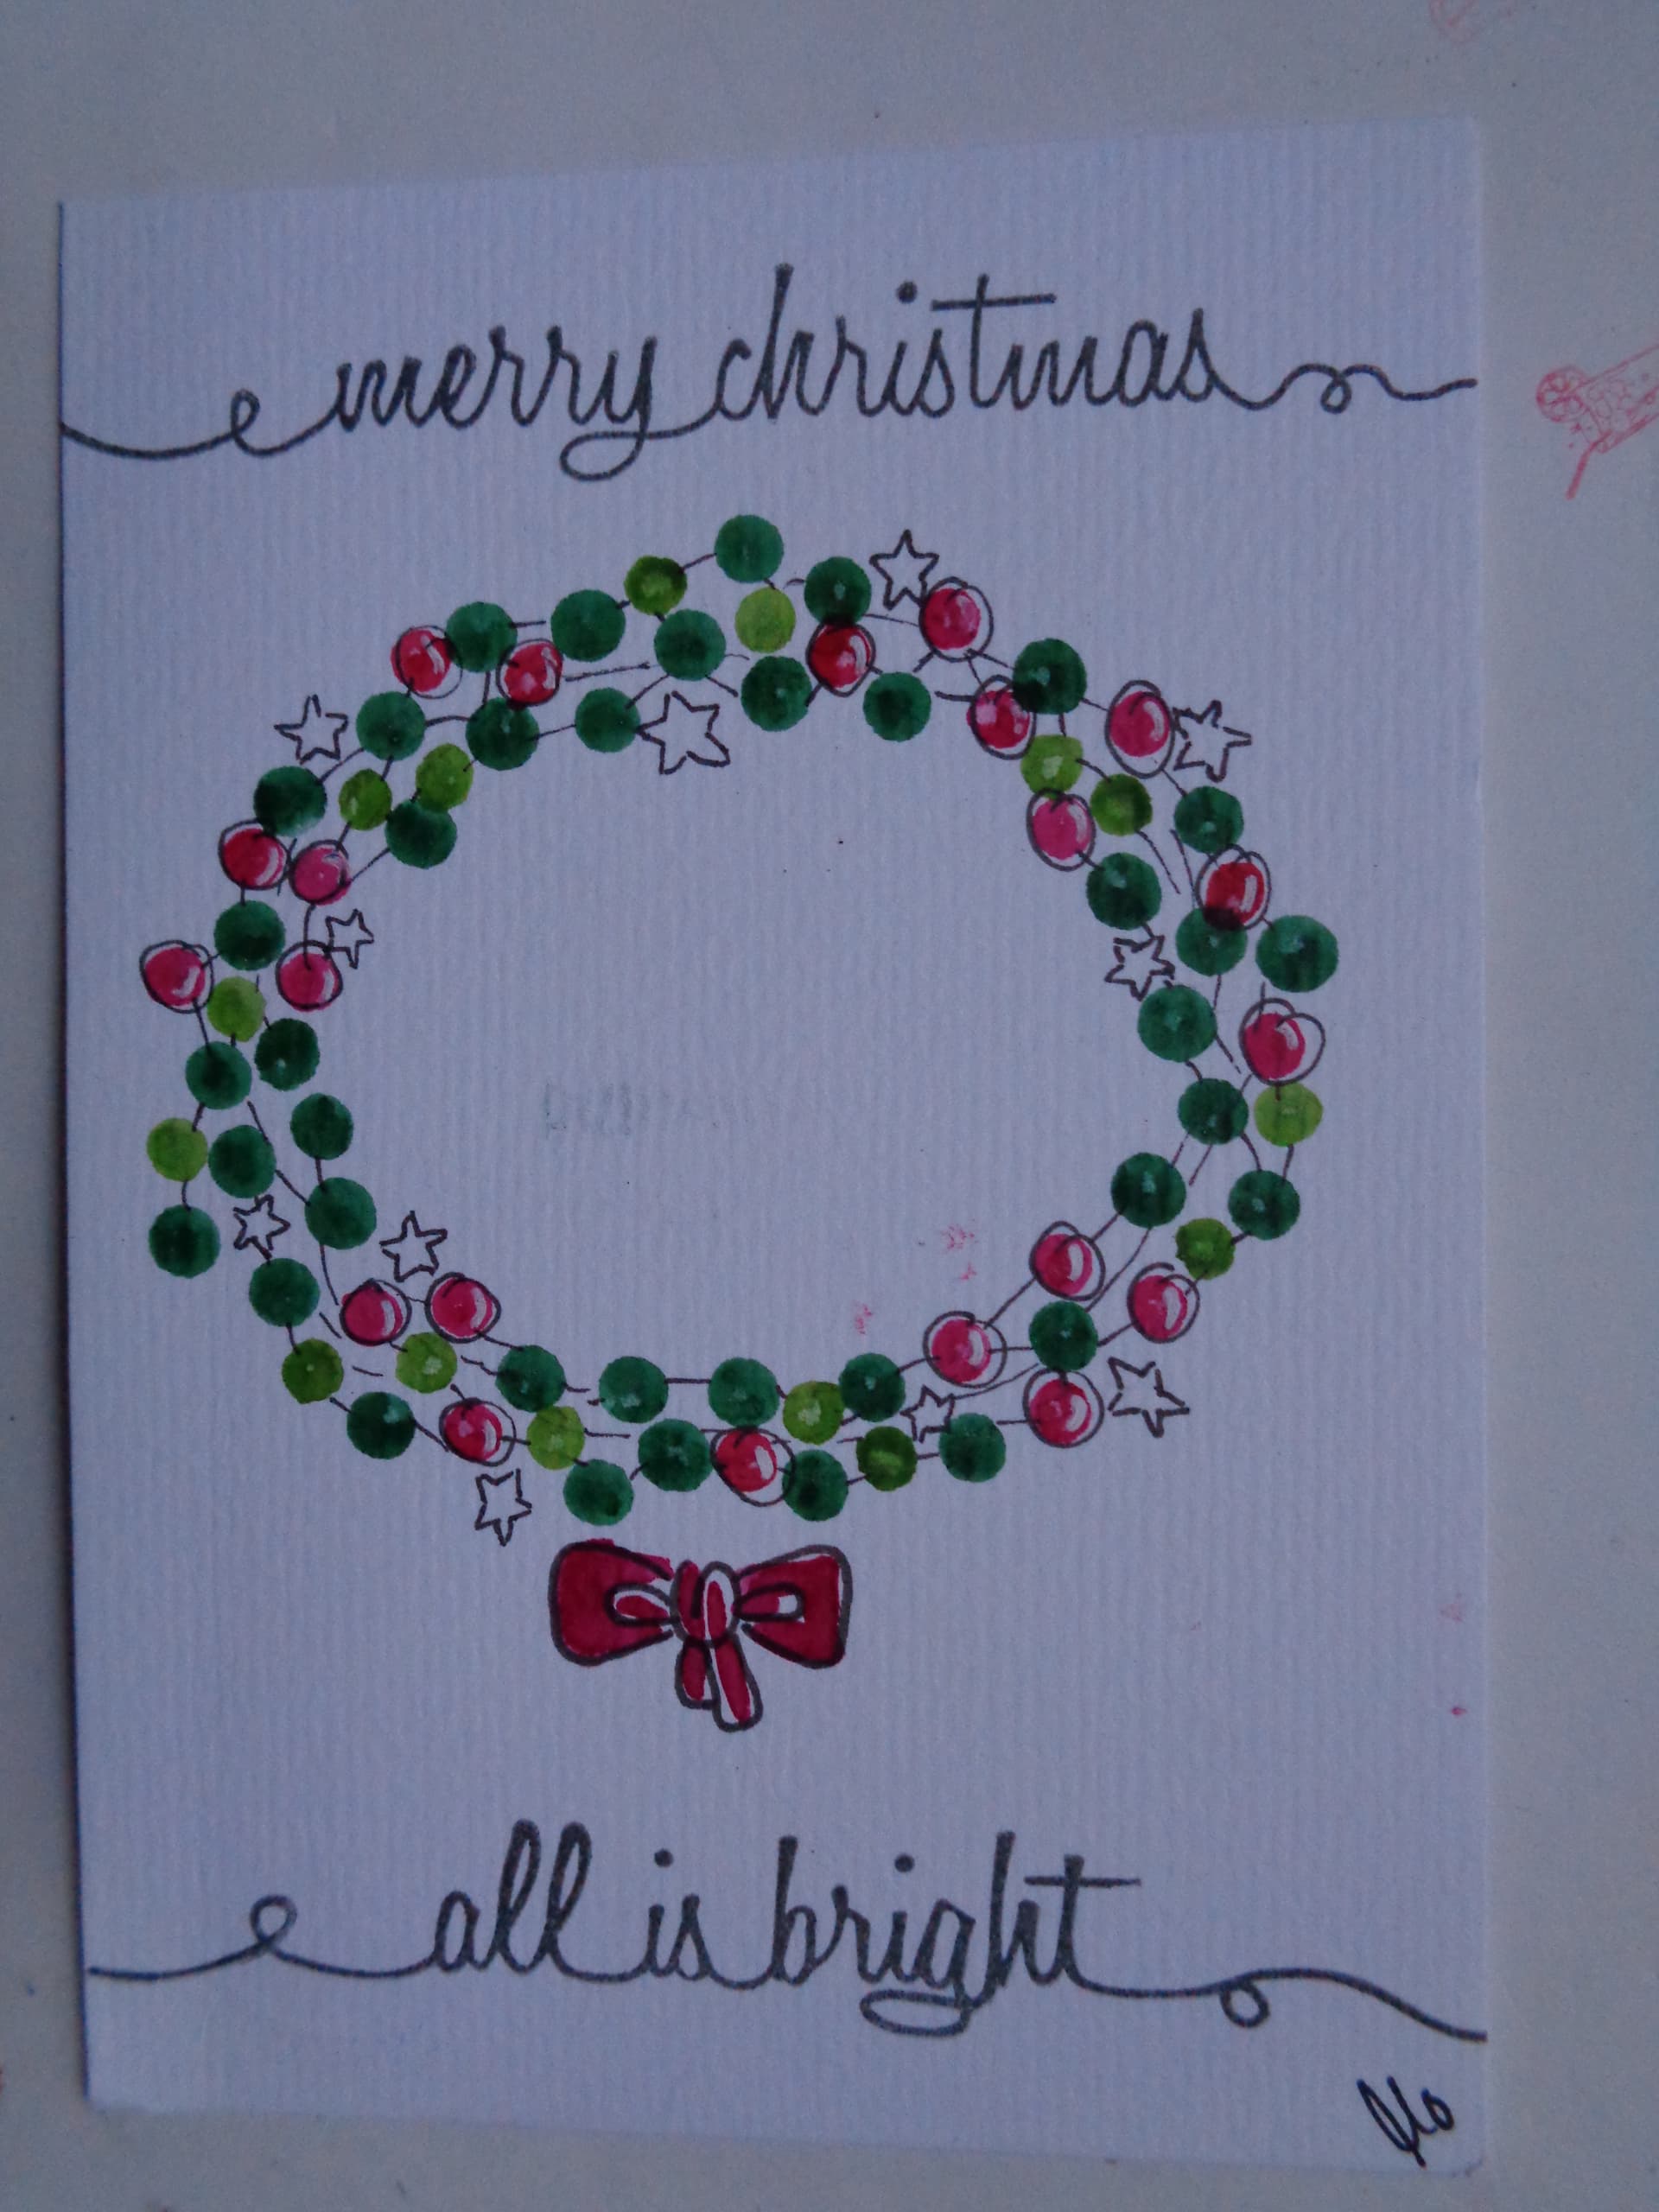 merry christmas
all is bright